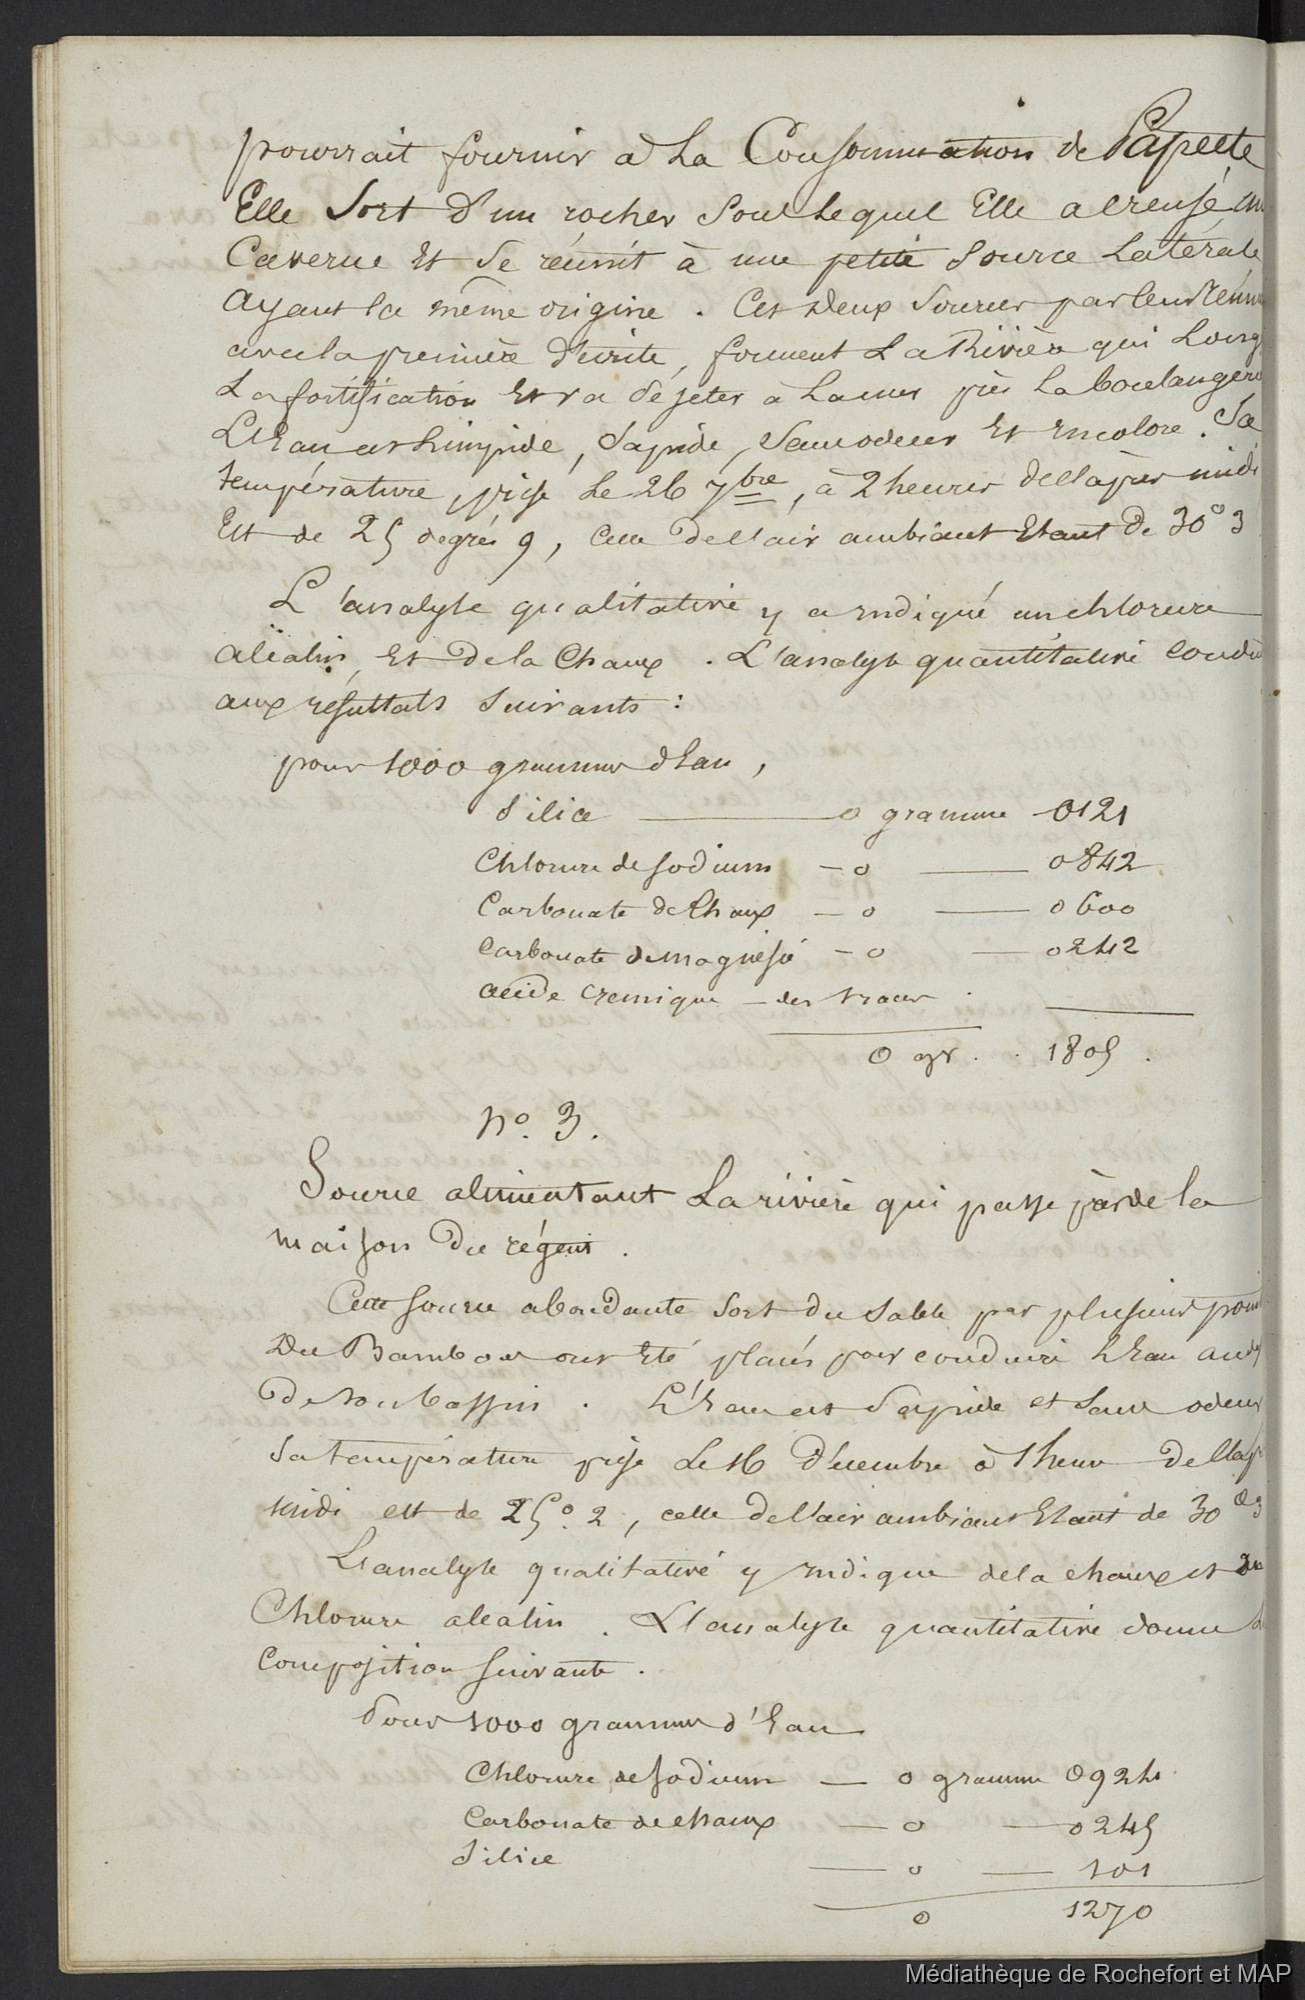 pourrait fournir à la Consommation de Papeete
Elle Sort d'un rocher Sous lequel Elle a creusé un
Caverne Et Se réunit à une petite Source Latérale
Ayant la même origine . Ces deux Sources par leur réunion
avec la première décrite, forment La Rivière qui Long
La fortification Et va se jeter à La mer près La boulangerie
L'Eau est Limpide, Sapide, Sans odeur Et Incolore . Sa
température, prise Le 26 7bre, à 2 heures de l'après midi
Est de 25 degrés 9, Celle de l'air ambiant Etant De 30° 3
L'analyse qualitative y a indiqué un chlorure
alcalin, Et de la Chaux . L'analyse quantitative condui
aux résultats Suivants :
pour 1000 grammes d'Eau,
Silice 0 gramme 0121
Chlorure de Sodium - 0 — 0842
Carbonate de Chaux - 0 — 0600
Carbonate de magnésie - 0 — 0242
acide Crenique - des traces .
0 gr . . 1805 .
No. 3.
Source alimentant La rivière qui passe près de la
maison Du régent .
Cette Source abondante Sort du Sable par plusieurs point
Des Bambous ont Eté placés pour conduire L'Eau au delà
De Son bassin . L'Eau est Sapide et Sans odeur
Sa température prise Le 16 Décembre à 1 heure de l'ap
midi est de 25°. 2, celle de l'air ambiant Etant de 30° 3
L'analyse qualitative y indique de la chaux et un
Chlorure alcalin . L'analyse quantitative donne la
Composition Suivante .
Pour 1000 grammes d'Eau
Chlorure de Sodium — 0 gramme 0924
Carbonate de chaux — 0 — 0245
Silice — 0 — 101
0 1270
Médiathèque de Rochefort et MAP